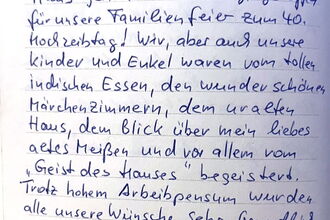 für unsere Familienfeier zum 40.
Hochzeitstag! Wir, aber auch unsere
Kinder und Enkel waren vom tollen
indischen Essen, den wunderschönen
Märchenzimmern, dem uralten
Haus, dem Blick über mein liebes
altes Meißen und vor allem vom
"Geist des Hauses" begeistert.
Trotz hohem Arbeitspensum wurden
alle unsere Wünsche sehr